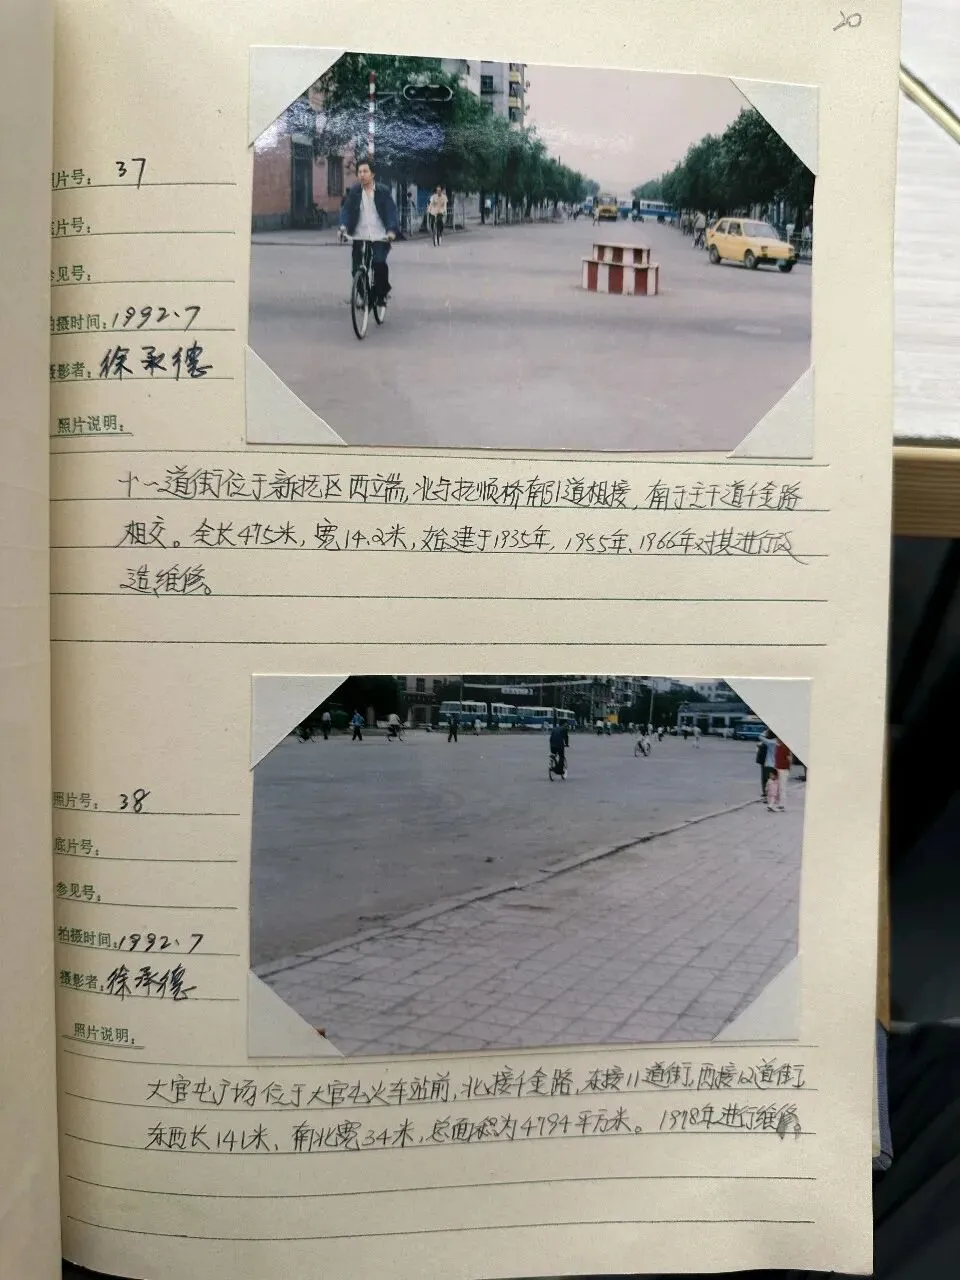 20
片号: 37
片号:
参见号:
拍摄时间: 1992.7
摄影者: 徐承德
照片说明:
十一道街位于新抚区西端,北与抚顺桥南引道相接,南于主干道千金路
相交。全长475米,宽14.2米,始建于1935年,1955年、1966年对其进行改
造维修。
照片号: 38
底片号:
参见号:
拍摄时间: 1992.7
摄影者: 徐承德
照片说明:
大官屯广场位于大官屯火车站前,北接千金路,东接11道街,西接12道街
东西长141米,南北宽34米,总面积为4794平方米。1978年进行维修。